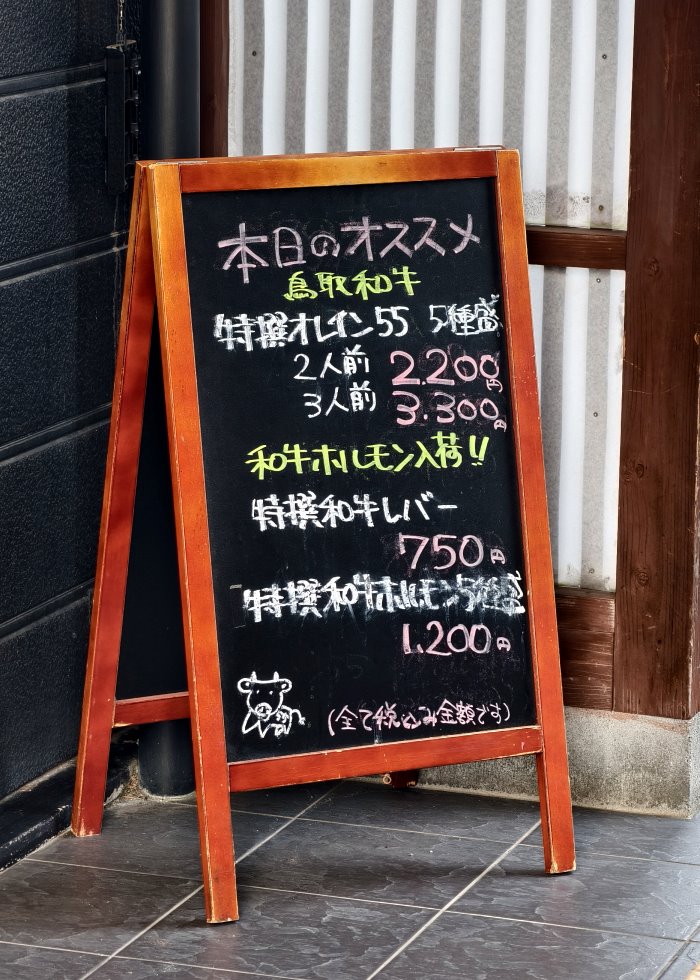 本日のオススメ
鳥取和牛
特撰オレイン55 5種盛
2人前 2.200円
3人前 3.300円
和牛ホルモン入荷!!
特撰和牛レバー
750円
特撰和牛ホルモン5種盛
1.200円
(全て税込み金額です)